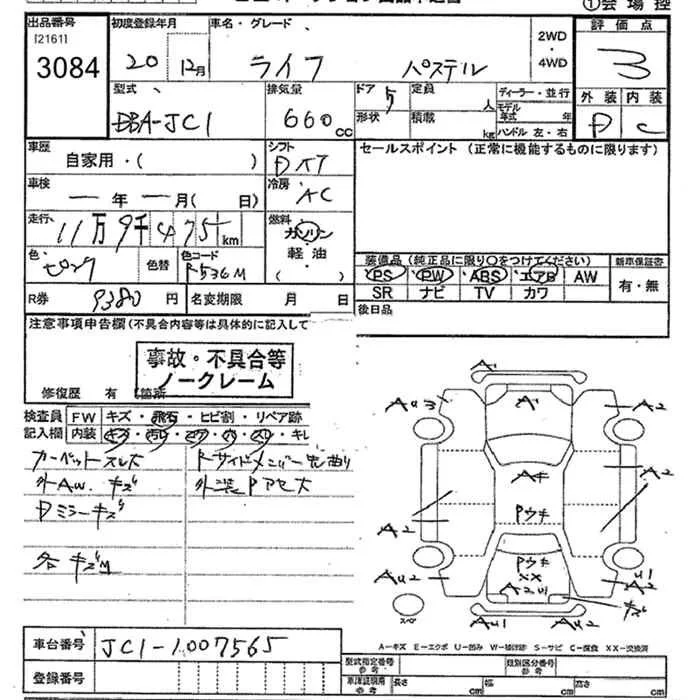 ①会場控
出品番号 初度登録年月 車名・グレード 評価点
[2161]
3084 20 12月 ライフ パステル 2WD・4WD 3
型式 排気量 ドア 定員 ディーラー・並行 外装 内装
DBA-JC1 660cc 5 人 モデル年式 年 D C
形状 積載 kg ハンドル 左・右
車歴 シフト セールスポイント(正常に機能するものに限ります)
自家用・( )
車検 冷房
一年一月( 日) AC
走行 燃料
11万9千475km ガソリン・軽油・( )
色 色替 色コード 装備品(純正品に限り○をつけてください) 新車保証書
R536M PS PW ABS エアB AW 有・無
SR ナビ TV カワ
R券 9380円 名変期限 月 日 後日品
注意事項申告欄(不具合内容等は具体的に記入して
事故・不具合等
ノークレーム
修復歴 有 箇所
検査員 FW キズ・飛石・ヒビ割・リペア跡
記入欄 内装 キズ・汚レ・コゲ・穴・スレ・キレ
カーペットスレ大 Rサイドメンバー 曲り
外AW. キズ 外装Pアセ大
Dミラーキズ
各キズM
A1
Au3 A1 A2
Aキ A2
A2 Pウキ
Pウキ
XX
Au2 A2u1 u1 A2
スペア Au1 Au2 キズ
A-キズ E-エクボ U-凹み W-補修跡 S-サビ C-腐食 XX-交換済
車台番号 JC1-1007565
登録番号
型式指定番号 参考 類別区分番号 参考
車体証明用 参考 長さ cm 幅 cm 高さ cm